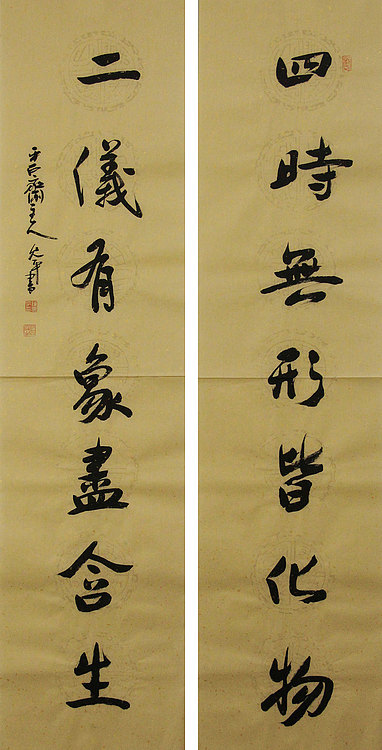 四時無形皆化物
二儀有象盡含生
主人
書